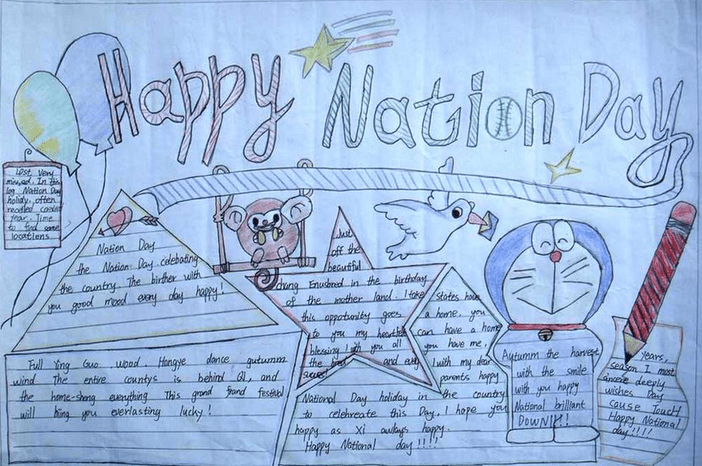 Happy Nation Day
very
In
log Nation Day
holidy, often
fear. Time
to find some
locations
Nation Day
the Nation Day celebrating
the country. The birther with
you good mood every day happy!
Full Ying Guo wood. Hongye dance gutumm
wind The entire countys is behind QI, and
the home-shang everything This grand festival
will bing you everlasting lucky!
Just
off the
beautiful
Enusbred in the birthday
of the mother land. I take
this oppotunity goes
to you my heartfelt
blessing I wish you all
the and
States have
a home. you
can have a home
you have me,
I with my dear
parents happy
National Day holiday in the country
to celehreate this Day. I hope you
happy as Xi always happy.
Happy National day !!!!
Autumm the harvest
with the smile
with you happy
National brilliant
years,
season I most
sincere deeply
wishes Day
cause Touch
Happy National
day!!!!